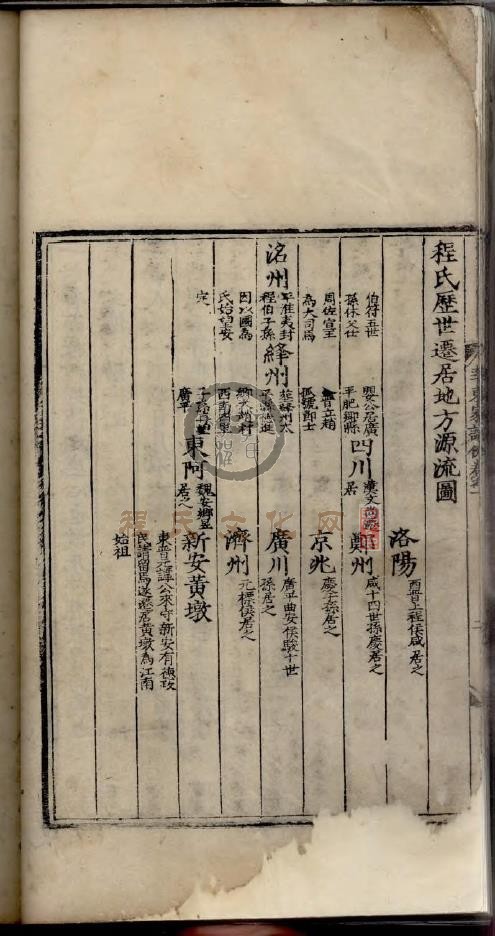 程氏歷世遷居地方源流圖
洛陽
西晉上程侯咸居之
伯符五世
孫休父仕
嬰公居廣
平肥鄉縣
四川
漢文
居
鄭州
咸十四世孫慶居之
周佐宣王
為大司馬
曾立趙
孤號節士
京兆
慶子孫居之
洺州
平淮夷封
程伯子孫
絳州
廣川
廣平曲安侯駿十世
孫居之
因以國為
氏始望安
濟州
元標侯居之
定
廣平
東阿
魏安鄉
居之
新安黃墩
東晉元譚公來守新安有德政
民請留焉遂居黃墩為江南
始祖
程氏文化网